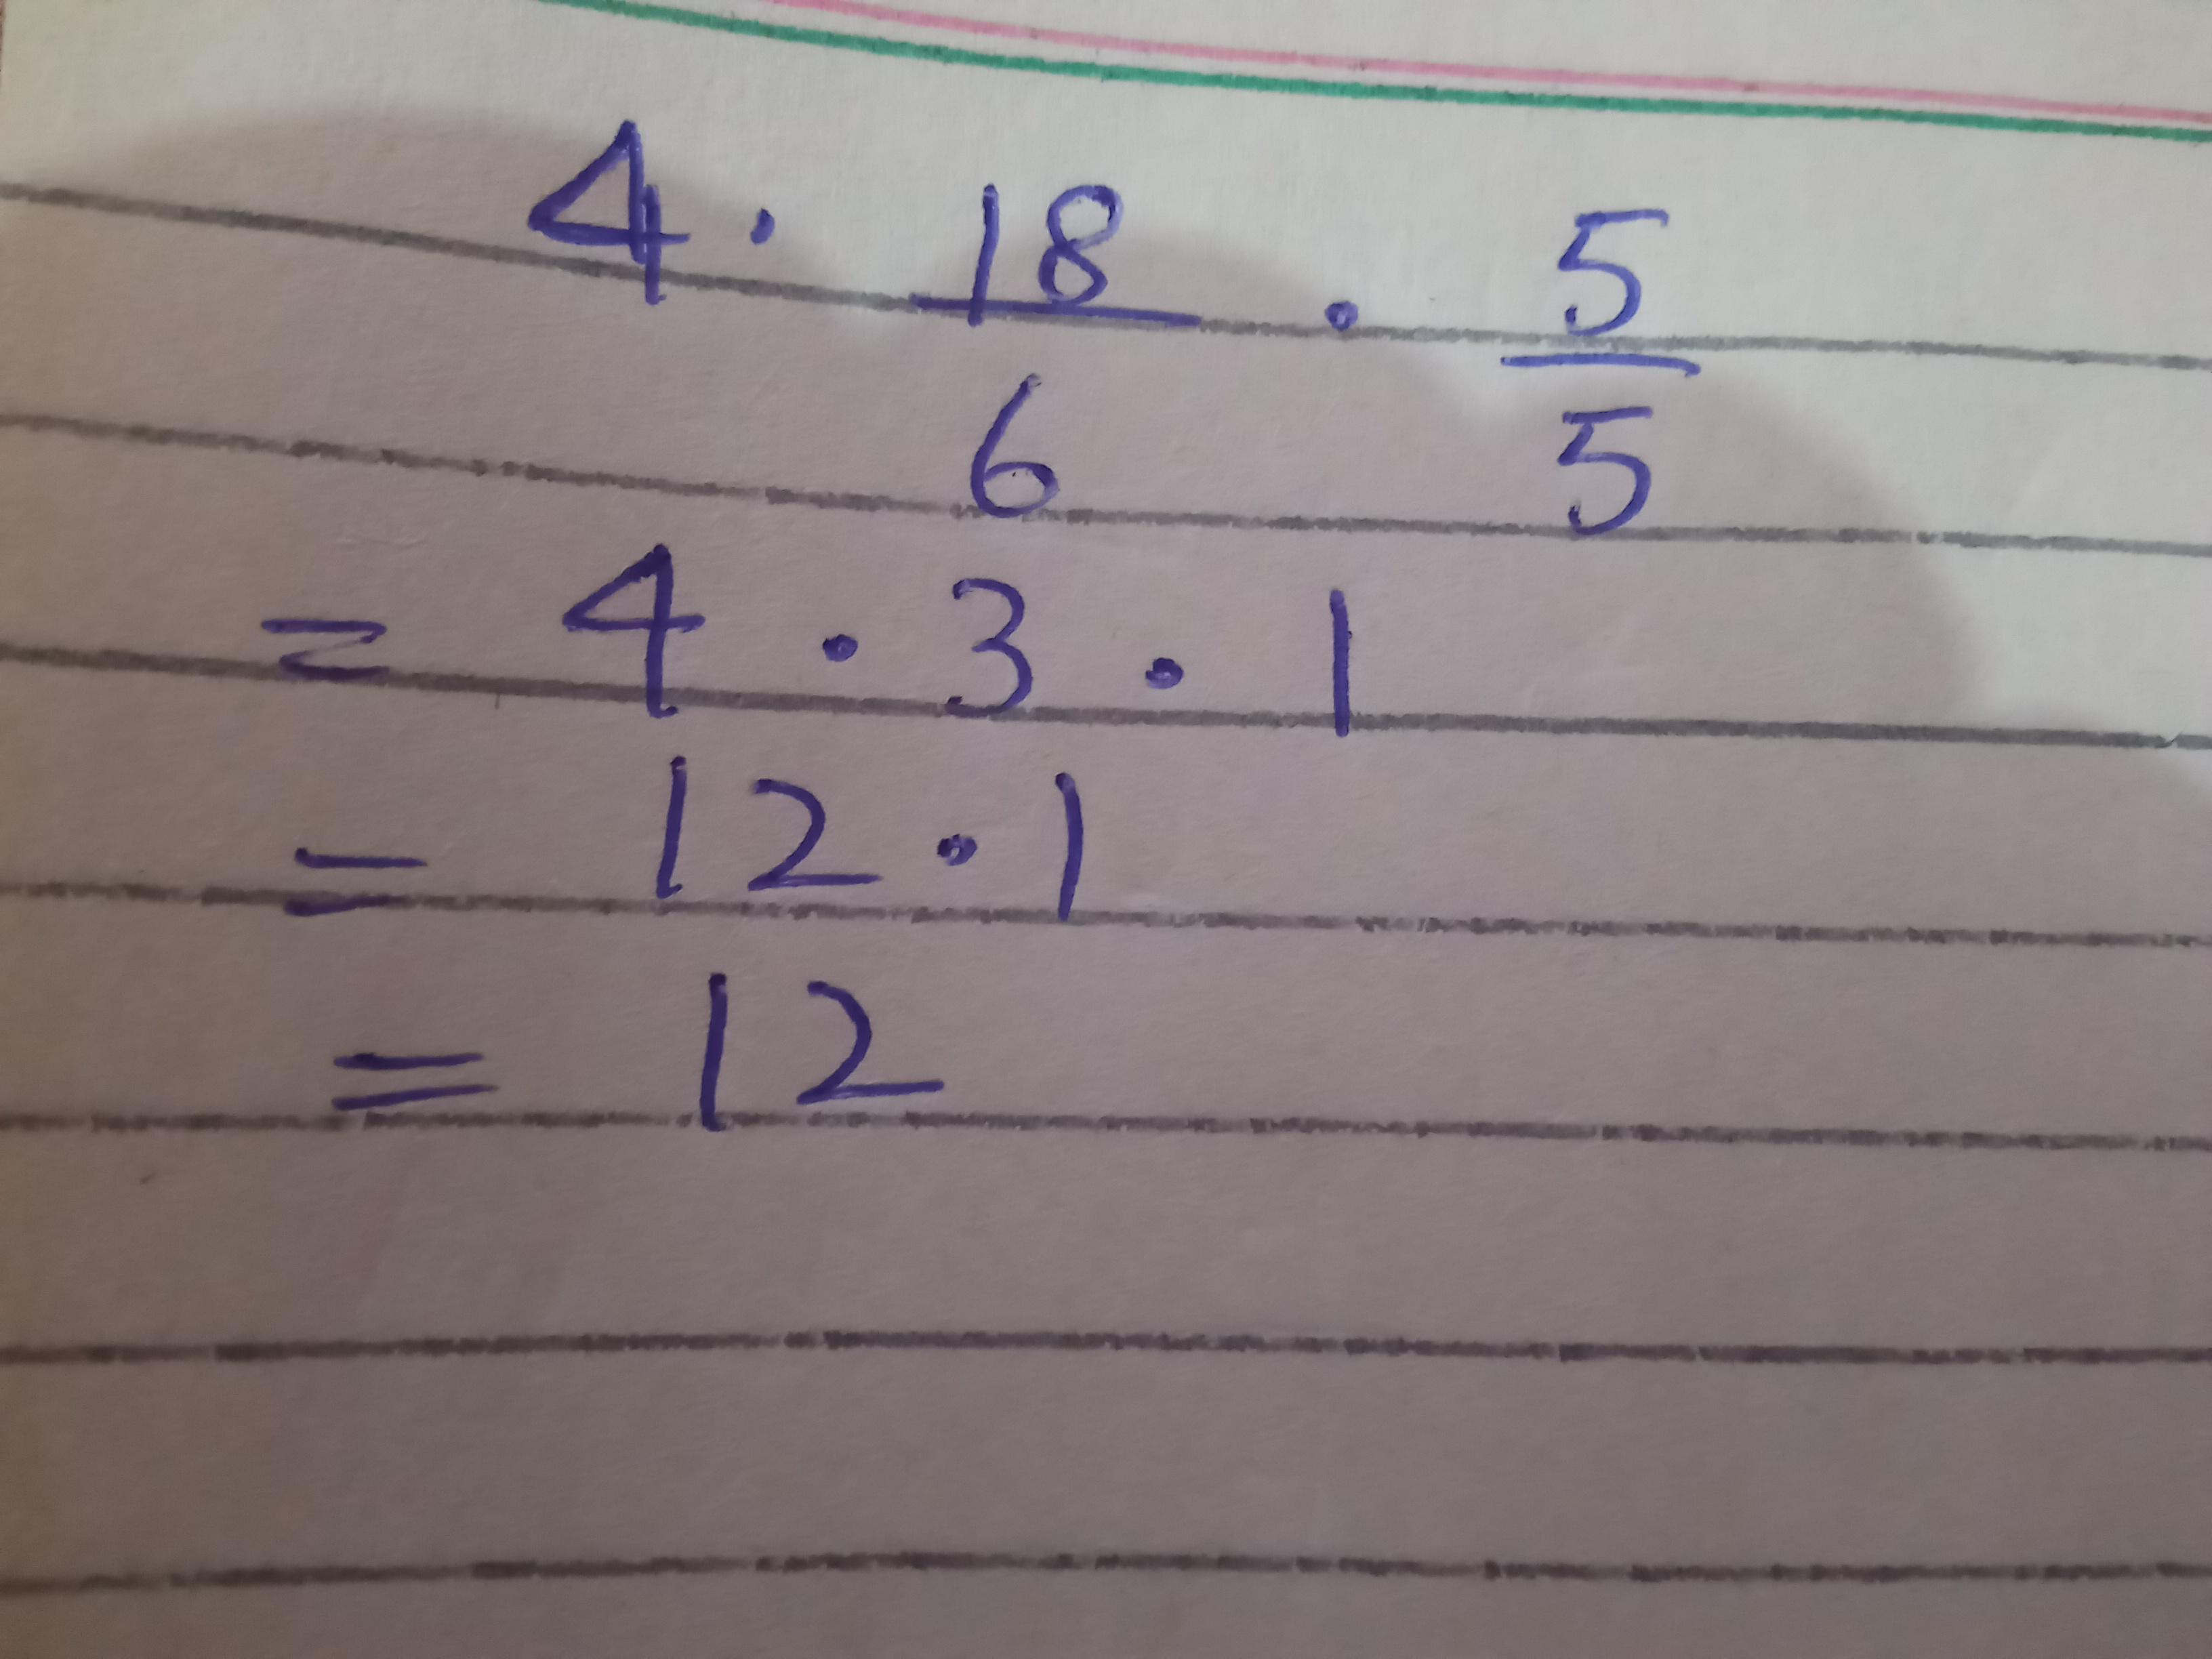 4 · 18/6 · 5/5
= 4 · 3 · 1
= 12 · 1
= 12